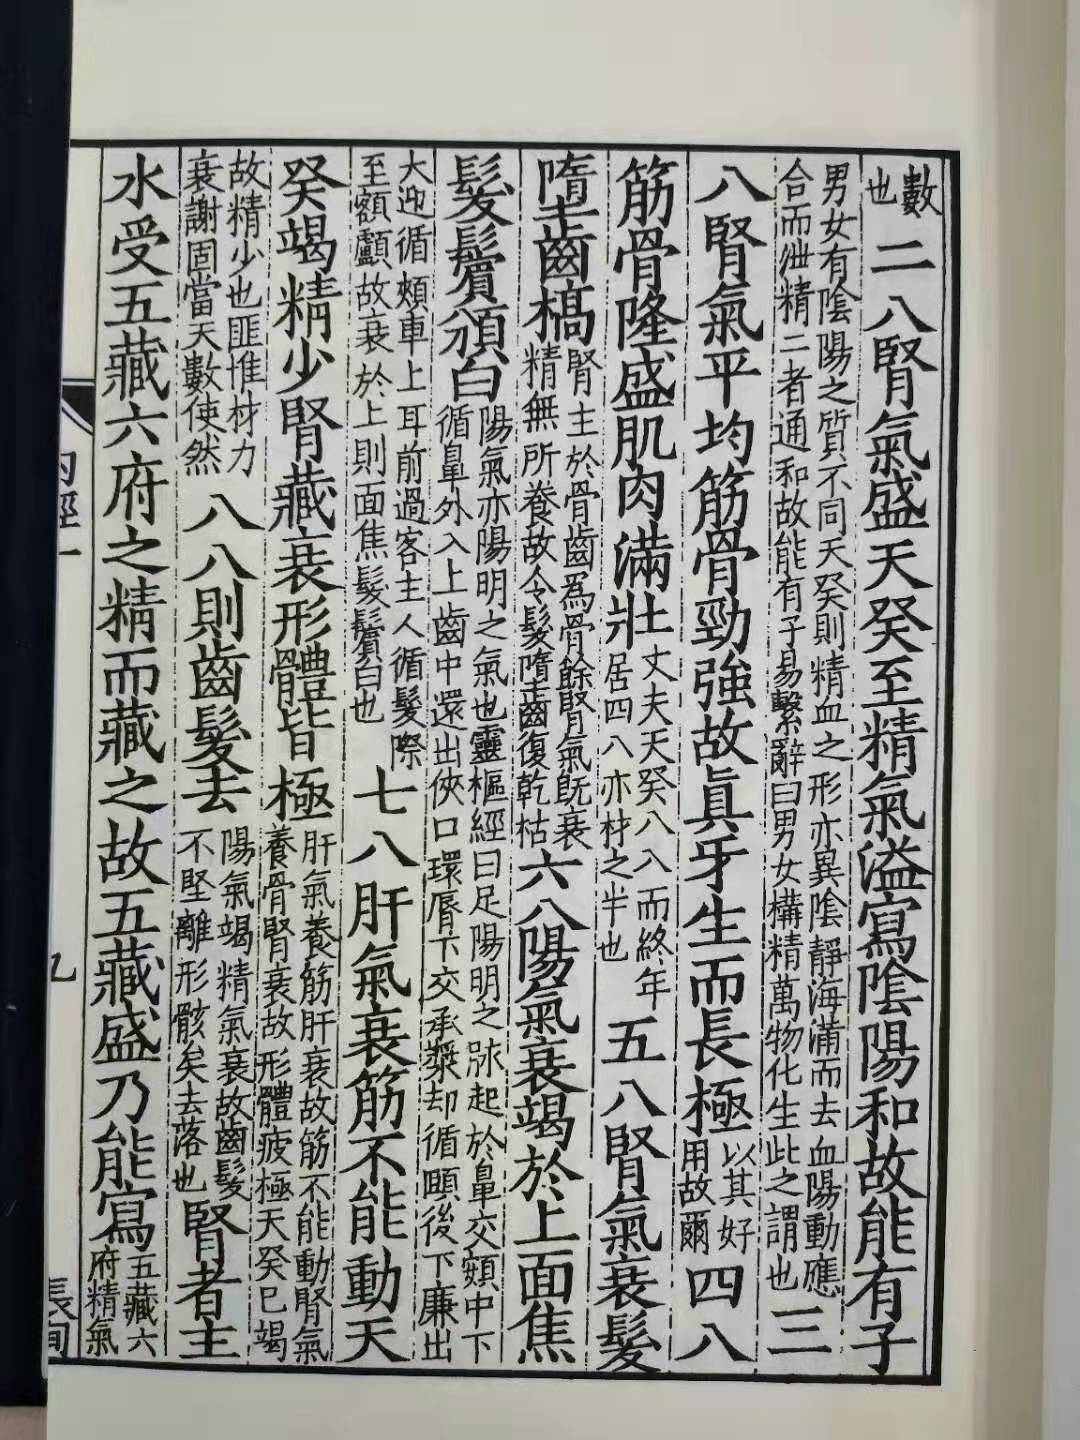 數也二八腎氣盛天癸至精氣溢寫陰陽和故能有子
男女有陰陽之質不同天癸則精血之形亦異陰靜海滿而去血陽動應
合而泄精二者通和故能有子易繫辭曰男女構精萬物化生此之謂也三
八腎氣平均筋骨勁強故眞牙生而長極以其好用故爾四八
筋骨隆盛肌肉滿壯丈夫天癸八八而終年居四八亦材之半也五八腎氣衰髮
墮齒槁腎主於骨齒爲骨餘腎氣旣衰精無所養故令髮墮齒復乾枯六八陽氣衰竭於上面焦
髮鬢頒白陽氣亦陽明之氣也靈樞經曰足陽明之脉起於鼻交頞中下循鼻外入上齒中還出俠口環脣下交承漿却循頤後下廉出
大迎循頰車上耳前過客主人循髮際至額顱故衰於上則面焦髮鬢白也七八肝氣衰筋不能動天
癸竭精少腎藏衰形體皆極肝氣養筋肝衰故筋不能動腎氣養骨腎衰故形體疲極天癸已竭
故精少也匪惟材力衰謝固當天數使然八八則齒髮去陽氣竭精氣衰故齒髮不堅離形骸矣去落也腎者主
水受五藏六府之精而藏之故五藏盛乃能寫五藏六府精氣
九